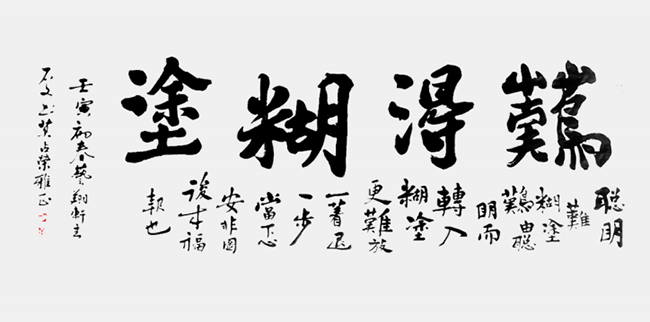 難得糊塗
聰明
難
糊塗
難由聰
明而
轉入
糊塗
更難放
一著退
一步
當下心
安非圖
後来福
報也
壬寅初春藝翔軒主
占榮雅正